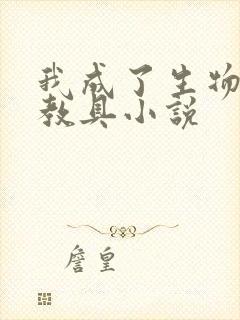 我成了生物
教具小说
詹皇